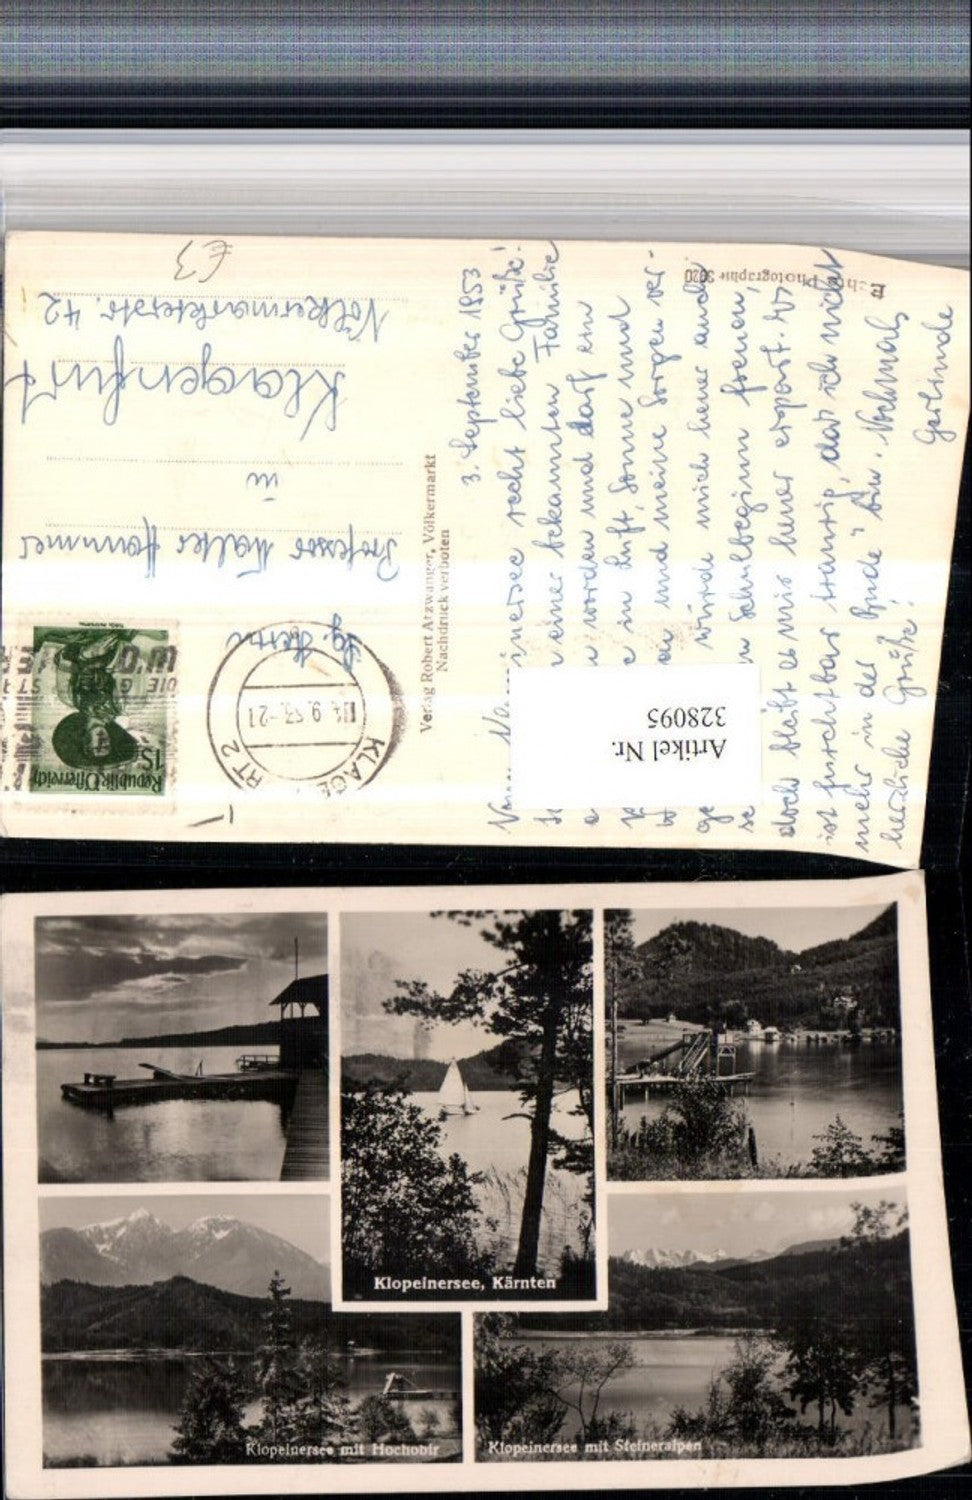 3. September 1953
Vom Klopeinersee recht liebe Grüße!
einer bekannten Familie
worden und darf ein
in Luft, Sonne und
und meine Sorgen ver-
würde mich heuer auch
Schulbeginn freuen,
doch bleibt es mir heuer erspart.
ist furchtbar traurig, daß ich nicht
mehr in der "Bude" bin. Nochmals
herzliche Grüße!
Gerlinde
Echte Photographie 3020
Verlag Robert Atzwanger, Völkermarkt
Nachdruck verboten
Artikel Nr.
328095
Republik Österreich
1S
KLAGENFURT 2
4.9.53.-21
Sg. Herrn
Professor Walter Hammer
in
Klagenfurt
Völkermarkterstr. 42
£3
Klopeinersee, Kärnten
Klopeinersee mit Hochobir
Klopeinersee mit Steineralpen